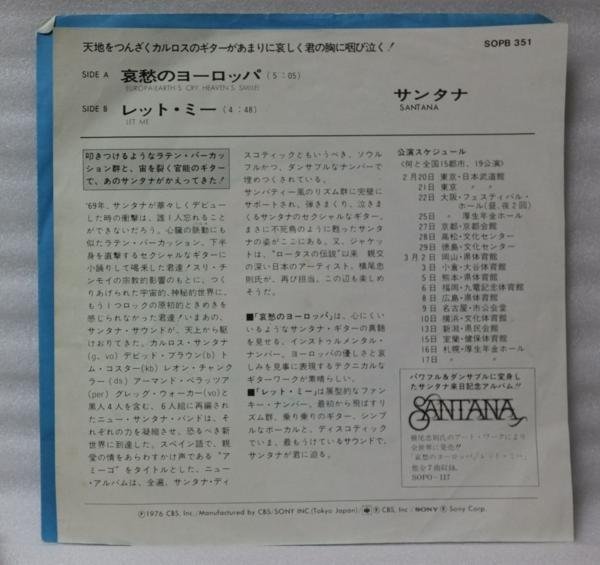 天地をつんざくカルロスのギターがあまりに哀しく君の胸に咽び泣く!
SOPB 351
SIDE A 哀愁のヨーロッパ (5:05)
EUROPA (EARTH'S CRY HEAVEN'S SMILE)
SIDE B レット・ミー (4:48)
LET ME
サンタナ
SANTANA
叩きつけるようなラテン・パーカッ
ション群と、宙を裂く官能のギター
で、あのサンタナがかえってきた!
'69年、サンタナが華々しくデビュー
した時の衝撃は、誰1人忘れること
ができないだろう。心臓の脈動にも
似たラテン・パーカッション、下半
身を直撃するセクシャルなギター
に小踊りして喝采した君達!スリ・チ
ンモイの宗教的影響のもとに、つく
りあげられた宇宙的、神秘的世界に、
もう1つロックの原初的ときめきを
感じられなかった君達!いまあの、
サンタナ・サウンドが、天上から駆
けおりてきた。カルロス・サンタナ
(g、vo) デビッド・ブラウン(b)ト
ム・コスター(kb) レオン・チャンク
ラー(ds) アーマンド・ペラッツァ
(per) グレッグ・ウォーカー(vo)と
黒人4人を含む、6人組に再編され
たニュー・サンタナ・バンドは、そ
れぞれの力を凝縮させ、恐るべき新
世界に到達した。スペイン語で、親
愛の情をあらわすかけ声である"ア
ミーゴ"をタイトルとした、ニュー
・アルバムは、全遍、サンタナ・ディ
スコティックともいうべき、ソウル
フルかつ、ダンサブルなナンバーで
埋めつくされている。
サンバティー風のリズム群に完璧に
サポートされ、弾きまくり、泣きま
くるサンタナのセクシャルなギター。
まさに不死鳥のように甦ったサンタ
ナの姿がここにある。又、ジャケッ
トは、"ロータスの伝説"以来 親交
の深い日本のアーティスト。横尾忠
則氏が、再び担当。この辺も楽しめ
そうだ。
■「哀愁のヨーロッパ」は、心にくい
いるようなサンタナ・ギターの真髄
を見せる、インストゥルメンタル・
ナンバー。ヨーロッパの優しさと哀
しみを見事に表現するテクニカルな
ギターワークが素晴らしい。
■「レット・ミー」は典型的なファン
キー・ナンバー。最初から飛ばすリ
ズム群、乗り乗りのギター、シンプ
ルなボーカルと、ディスコティック
でいま、最もうけているサウンドで、
サンタナが君に迫る。
公演スケジュール
〈何と全国15都市、19公演〉
2月20日 東京・日本武道館
21日 東京 〃 〃
22日 大阪・フェスティバル・
ホール(昼、夜2回)
25日 〃 厚生年金ホール
27日 京都・京都会館
28日 高松・文化センター
29日 徳島・文化センター
3月2日 岡山・県体育館
3日 小倉・大谷体育館
5日 熊本・県体育館
6日 福岡・九電記念体育館
8日 広島・県体育館
9日 名古屋・市公会堂
10日 横浜・文化体育館
13日 新潟・県民会館
15日 室蘭・健保体育館
16日 札幌・厚生年金ホール
17日 〃 〃
パワフル&ダンサブルに変身し
たサンタナ来日記念アルバム!!
SANTANA
横尾忠則氏のアート・ワークにより
全世界に発売!!
「哀愁のヨーロッパ/レット・ミー」
他を7曲収録。
SOPO-117
Ⓟ1976 CBS, Inc./Manufactured by CBS/SONY INC. (Tokyo Japan)/ Ⓡ CBS, Inc./SONY Ⓡ Sony Corp.